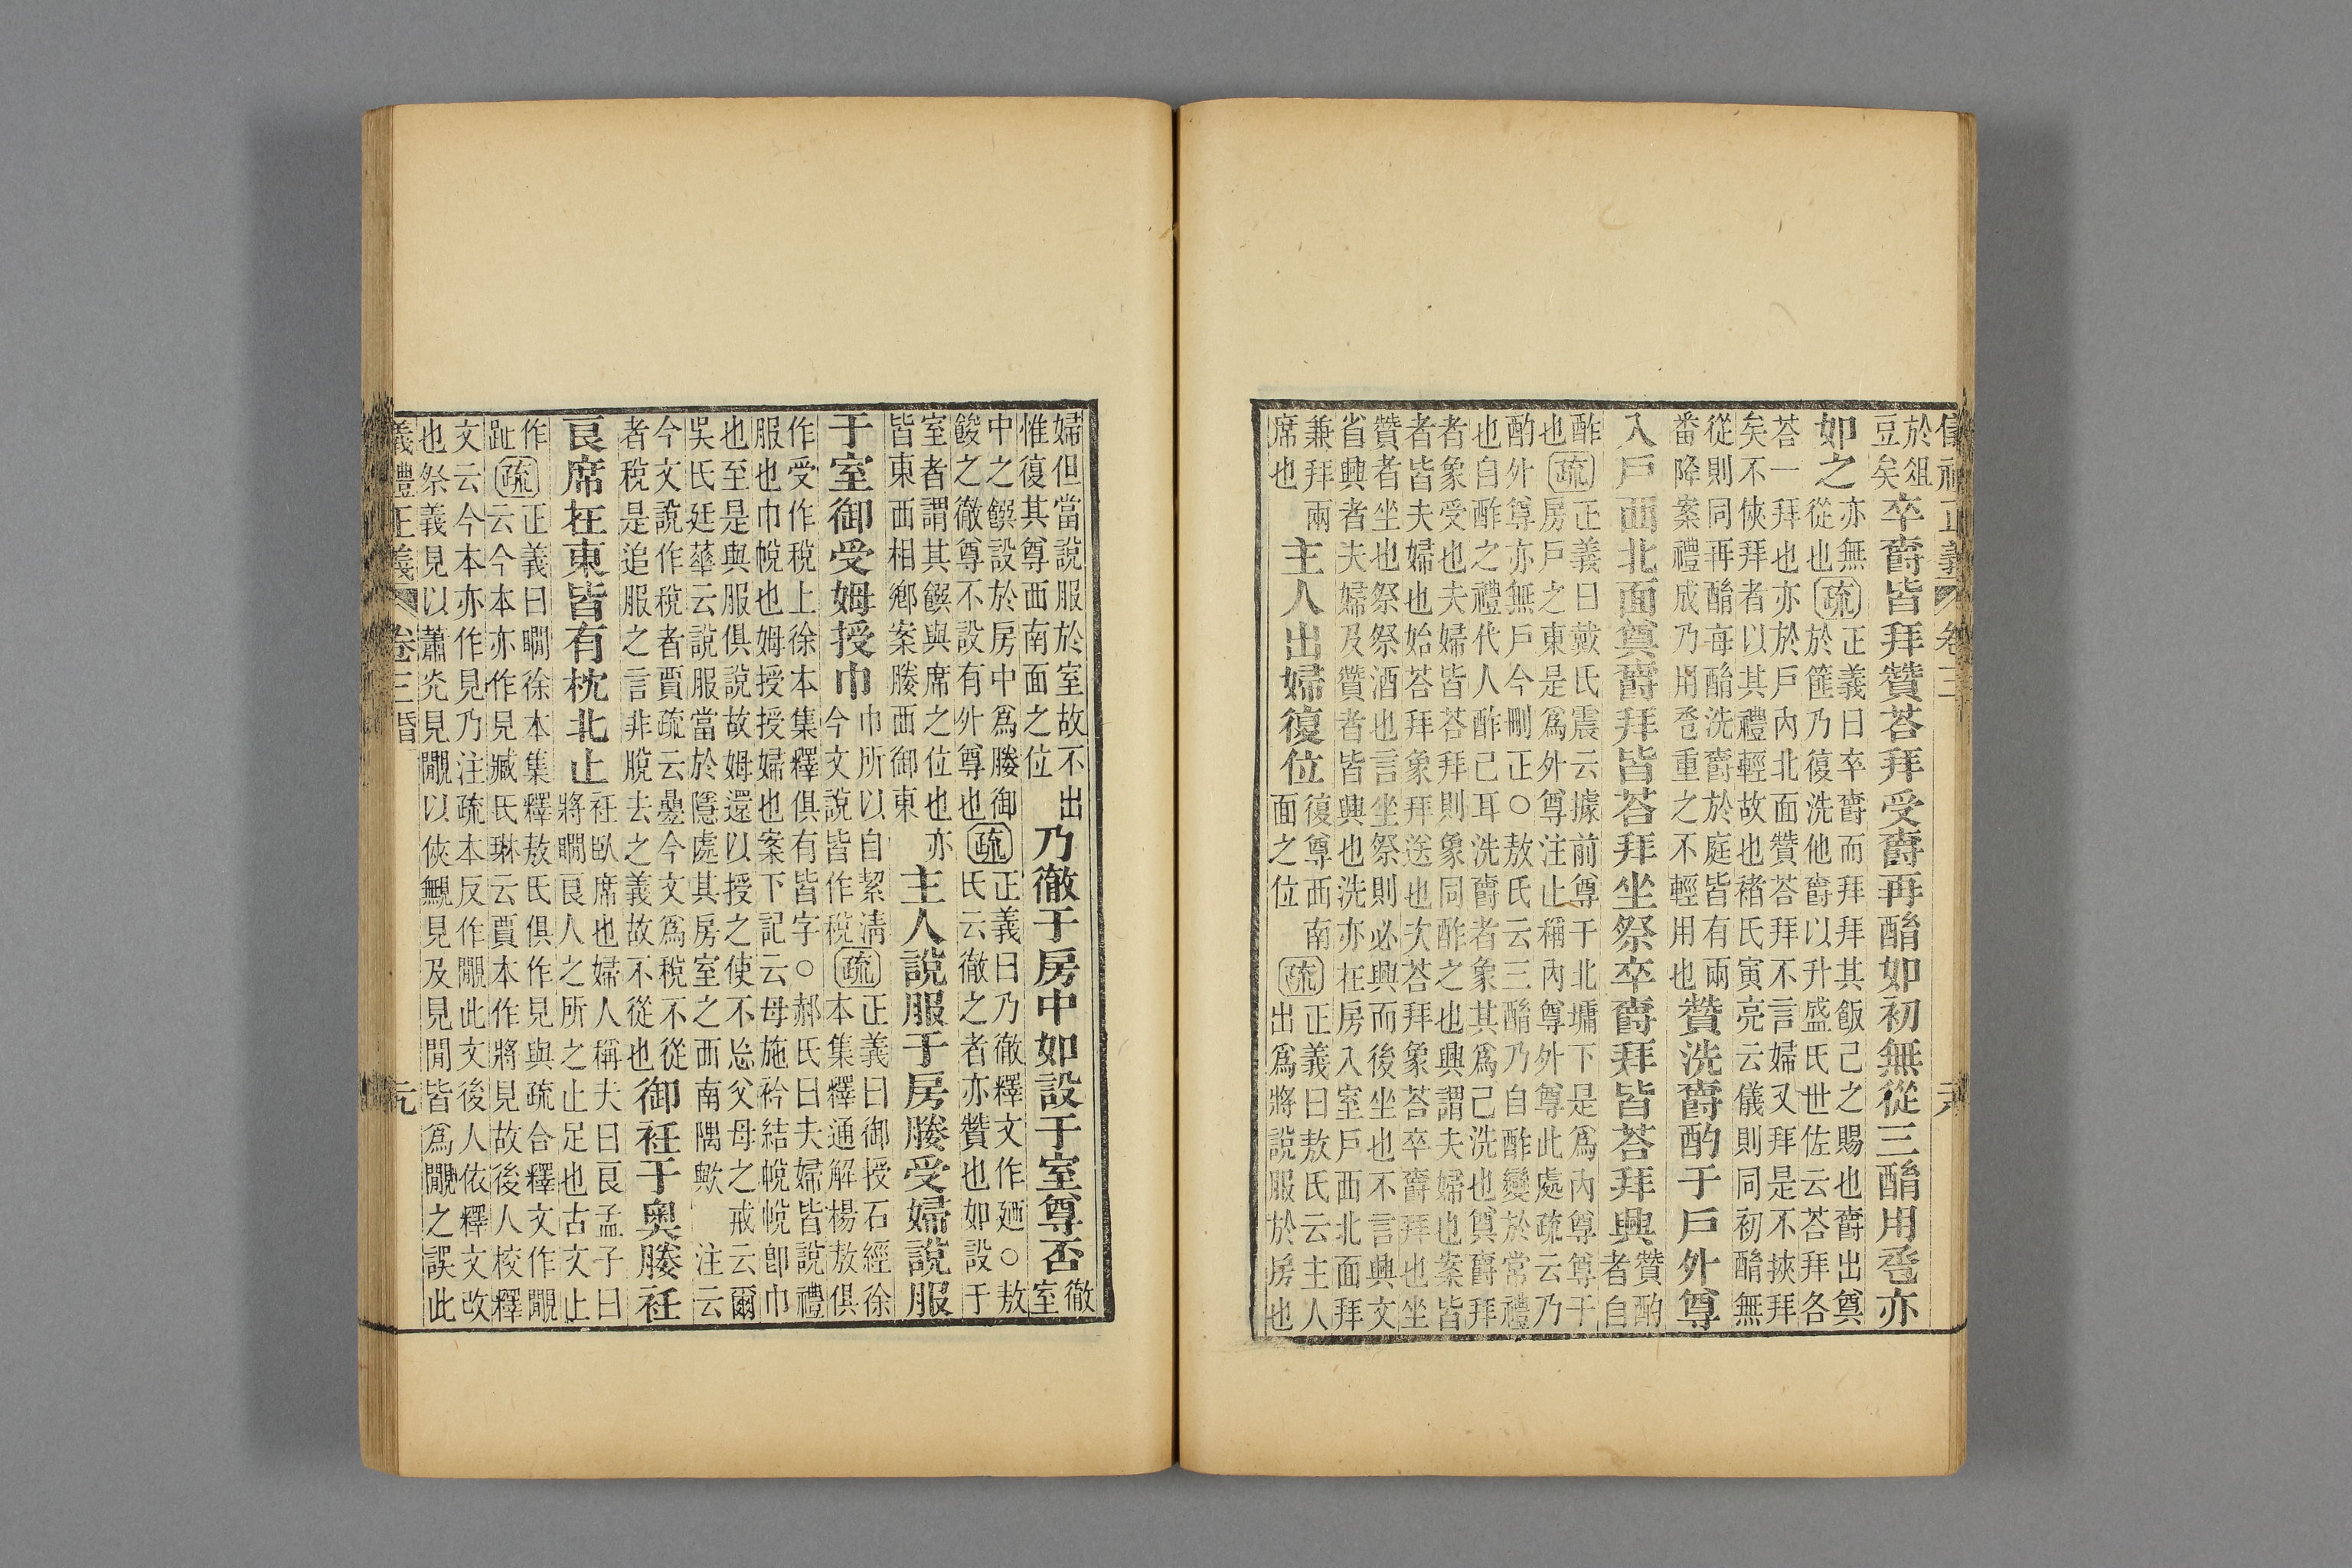 於俎
豆矣
卒爵皆拜贊荅拜受爵再酳如初無從三酳用卺亦
如之
亦無
從也
疏
正義曰卒爵而拜拜其飯己之賜也爵出奠
於篚乃復洗他爵以升盛氏世佐云荅拜各
荅一拜也亦於戶內北面贊荅拜不言婦又拜是不挾拜
矣不俠拜者以其禮輕故也褚氏寅亮云儀則同初酳無
從則同再酳每酳洗爵於庭皆有兩
番降案禮成乃用卺重之不輕用也
贊洗爵酌于戶外尊
入戶西北面奠爵拜皆荅拜坐祭卒爵拜皆荅拜興
贊酌
者自
酢
也
疏
正義曰戴氏震云據前尊于北墉下是爲內尊尊于
房戶之東是爲外尊注止稱內尊外尊此處疏云乃
酌外尊亦無戶今刪正○敖氏云三酳乃自酢變於常禮
也自酢之禮代人酢己耳洗爵者象其爲己洗也奠爵拜
者象受也夫婦皆荅拜則象同酢之也興謂夫婦也案皆
者皆夫婦也始荅拜象拜送也次荅拜象荅卒爵拜也坐
贊者坐也祭祭酒也言坐祭則必興而後坐也不言興文
省興者夫婦及贊者皆興也洗亦在房入室戶西北面拜
兼拜兩
席也
主人出婦復位
復尊西南
面之位
疏
正義曰敖氏云主人
出爲將說服於房也
婦但當說服於室故不出
惟復其尊西南面之位
乃徹于房中如設于室尊否
徹
室
中之饌設於房中爲媵御
餕之徹尊不設有外尊也
疏
正義曰乃徹釋文作廼○敖
氏云徹之者亦贊也如設于
室者謂其饌與席之位也亦
皆東西相鄉案媵西御東
主人說服于房媵受婦說服
于室御受姆授巾
巾所以自絜清
今文說皆作稅
疏
正義曰御授石經徐
本集釋通解楊敖俱
作受作稅上徐本集釋俱有皆字○郝氏曰夫婦皆說禮
服也巾帨也姆授授婦也案下記云母施衿結帨帨卽巾
也至是與服俱說故姆還以授之使不忘父母之戒云爾
吳氏廷華云說服當於隱處其房室之西南隅歟 注云
今文說作稅者賈疏云疊今文爲稅不從
者稅是追服之言非脫去之義故不從也
御衽于奧媵衽
良席在東皆有枕北止
衽臥席也婦人稱夫曰良孟子曰
將瞷良人之所之止足也古文止
作
趾
疏
正義曰瞷徐本集釋敖氏俱作見與疏合釋文作覸
云今本亦作見臧氏琳云賈本作將見故後人校釋
文云今本亦作見乃注疏本反作覸此文後人依釋文改
也祭義見以蕭光見覸以俠甒見及見閒皆爲覸之誤此
義禮正義 卷三